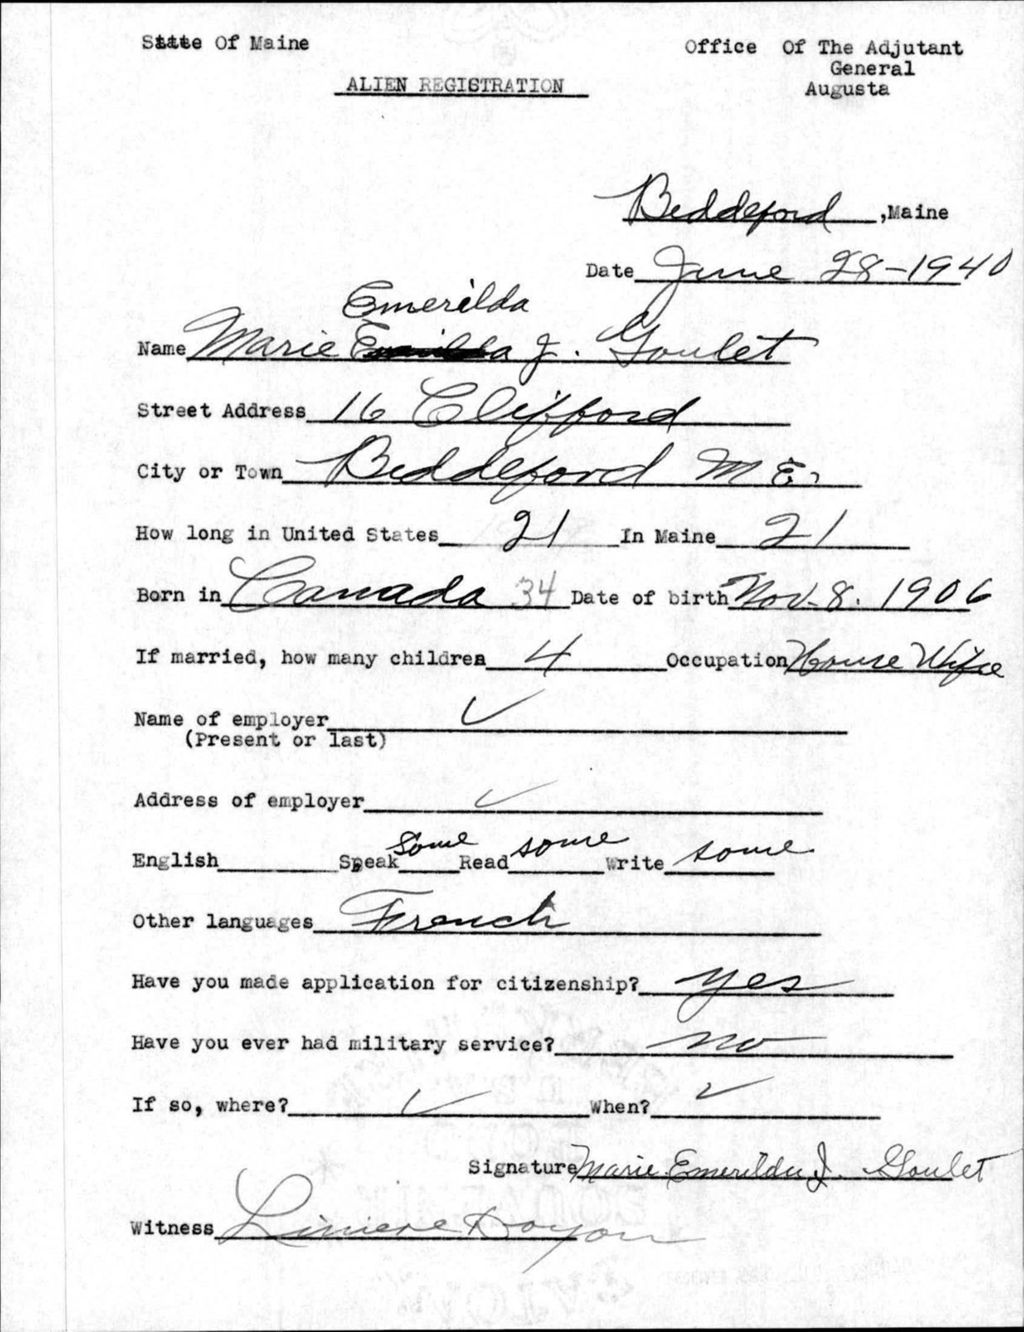 State Of Maine
Office Of The Adjutant
General
Augusta
ALIEN REGISTRATION
Biddeford, Maine
Date June 28-1940
Emerilda
Name Marie J. Goulet
Street Address 16 Clifford
City or Town Biddeford M E.
How long in United States 21 In Maine 21
Born in Canada 34 Date of birth Nov. 8. 1906
If married, how many children 4 Occupation House Wife
Name of employer ✓
(Present or last)
Address of employer ✓
English Speak Some Read some Write some
Other languages French
Have you made application for citizenship? yes
Have you ever had military service? no
If so, where? ✓ When? ✓
Signature Marie Emerilda J. Goulet
Witness Liniere Doyon